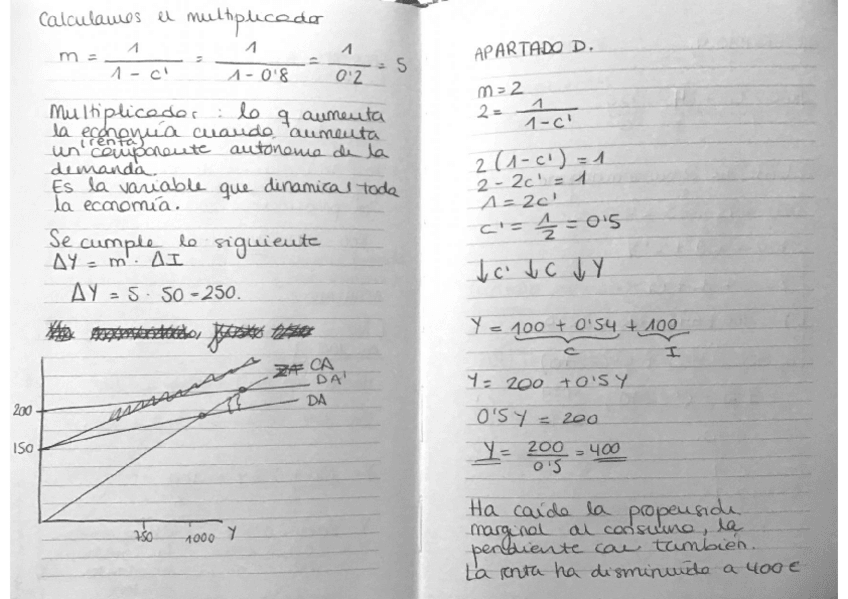 Calculamos el multiplicador
m = 1 / (1 - c') = 1 / (1 - 0'8) = 1 / 0'2 = 5
Multiplicador : lo q aumenta
la economía cuando aumenta
(renta)
un componente autonomo de la
demanda.
Es la variable que dinamica toda
la economía.
Se cumple lo siguiente
ΔY = m · ΔI
ΔY = 5 · 50 = 250.
OA
DA'
DA
200
150
750 1000 Y
APARTADO D.
m = 2
2 = 1 / (1 - c')
2 (1 - c') = 1
2 - 2c' = 1
1 = 2c'
c' = 1/2 = 0'5
↓c' ↓C ↓Y
Y = 100 + 0'5Y + 100
C I
Y = 200 + 0'5Y
0'5Y = 200
Y = 200 / 0'5 = 400
Ha caído la propensión
marginal al consumo, la
pendiente cae también.
La renta ha disminuido a 400€